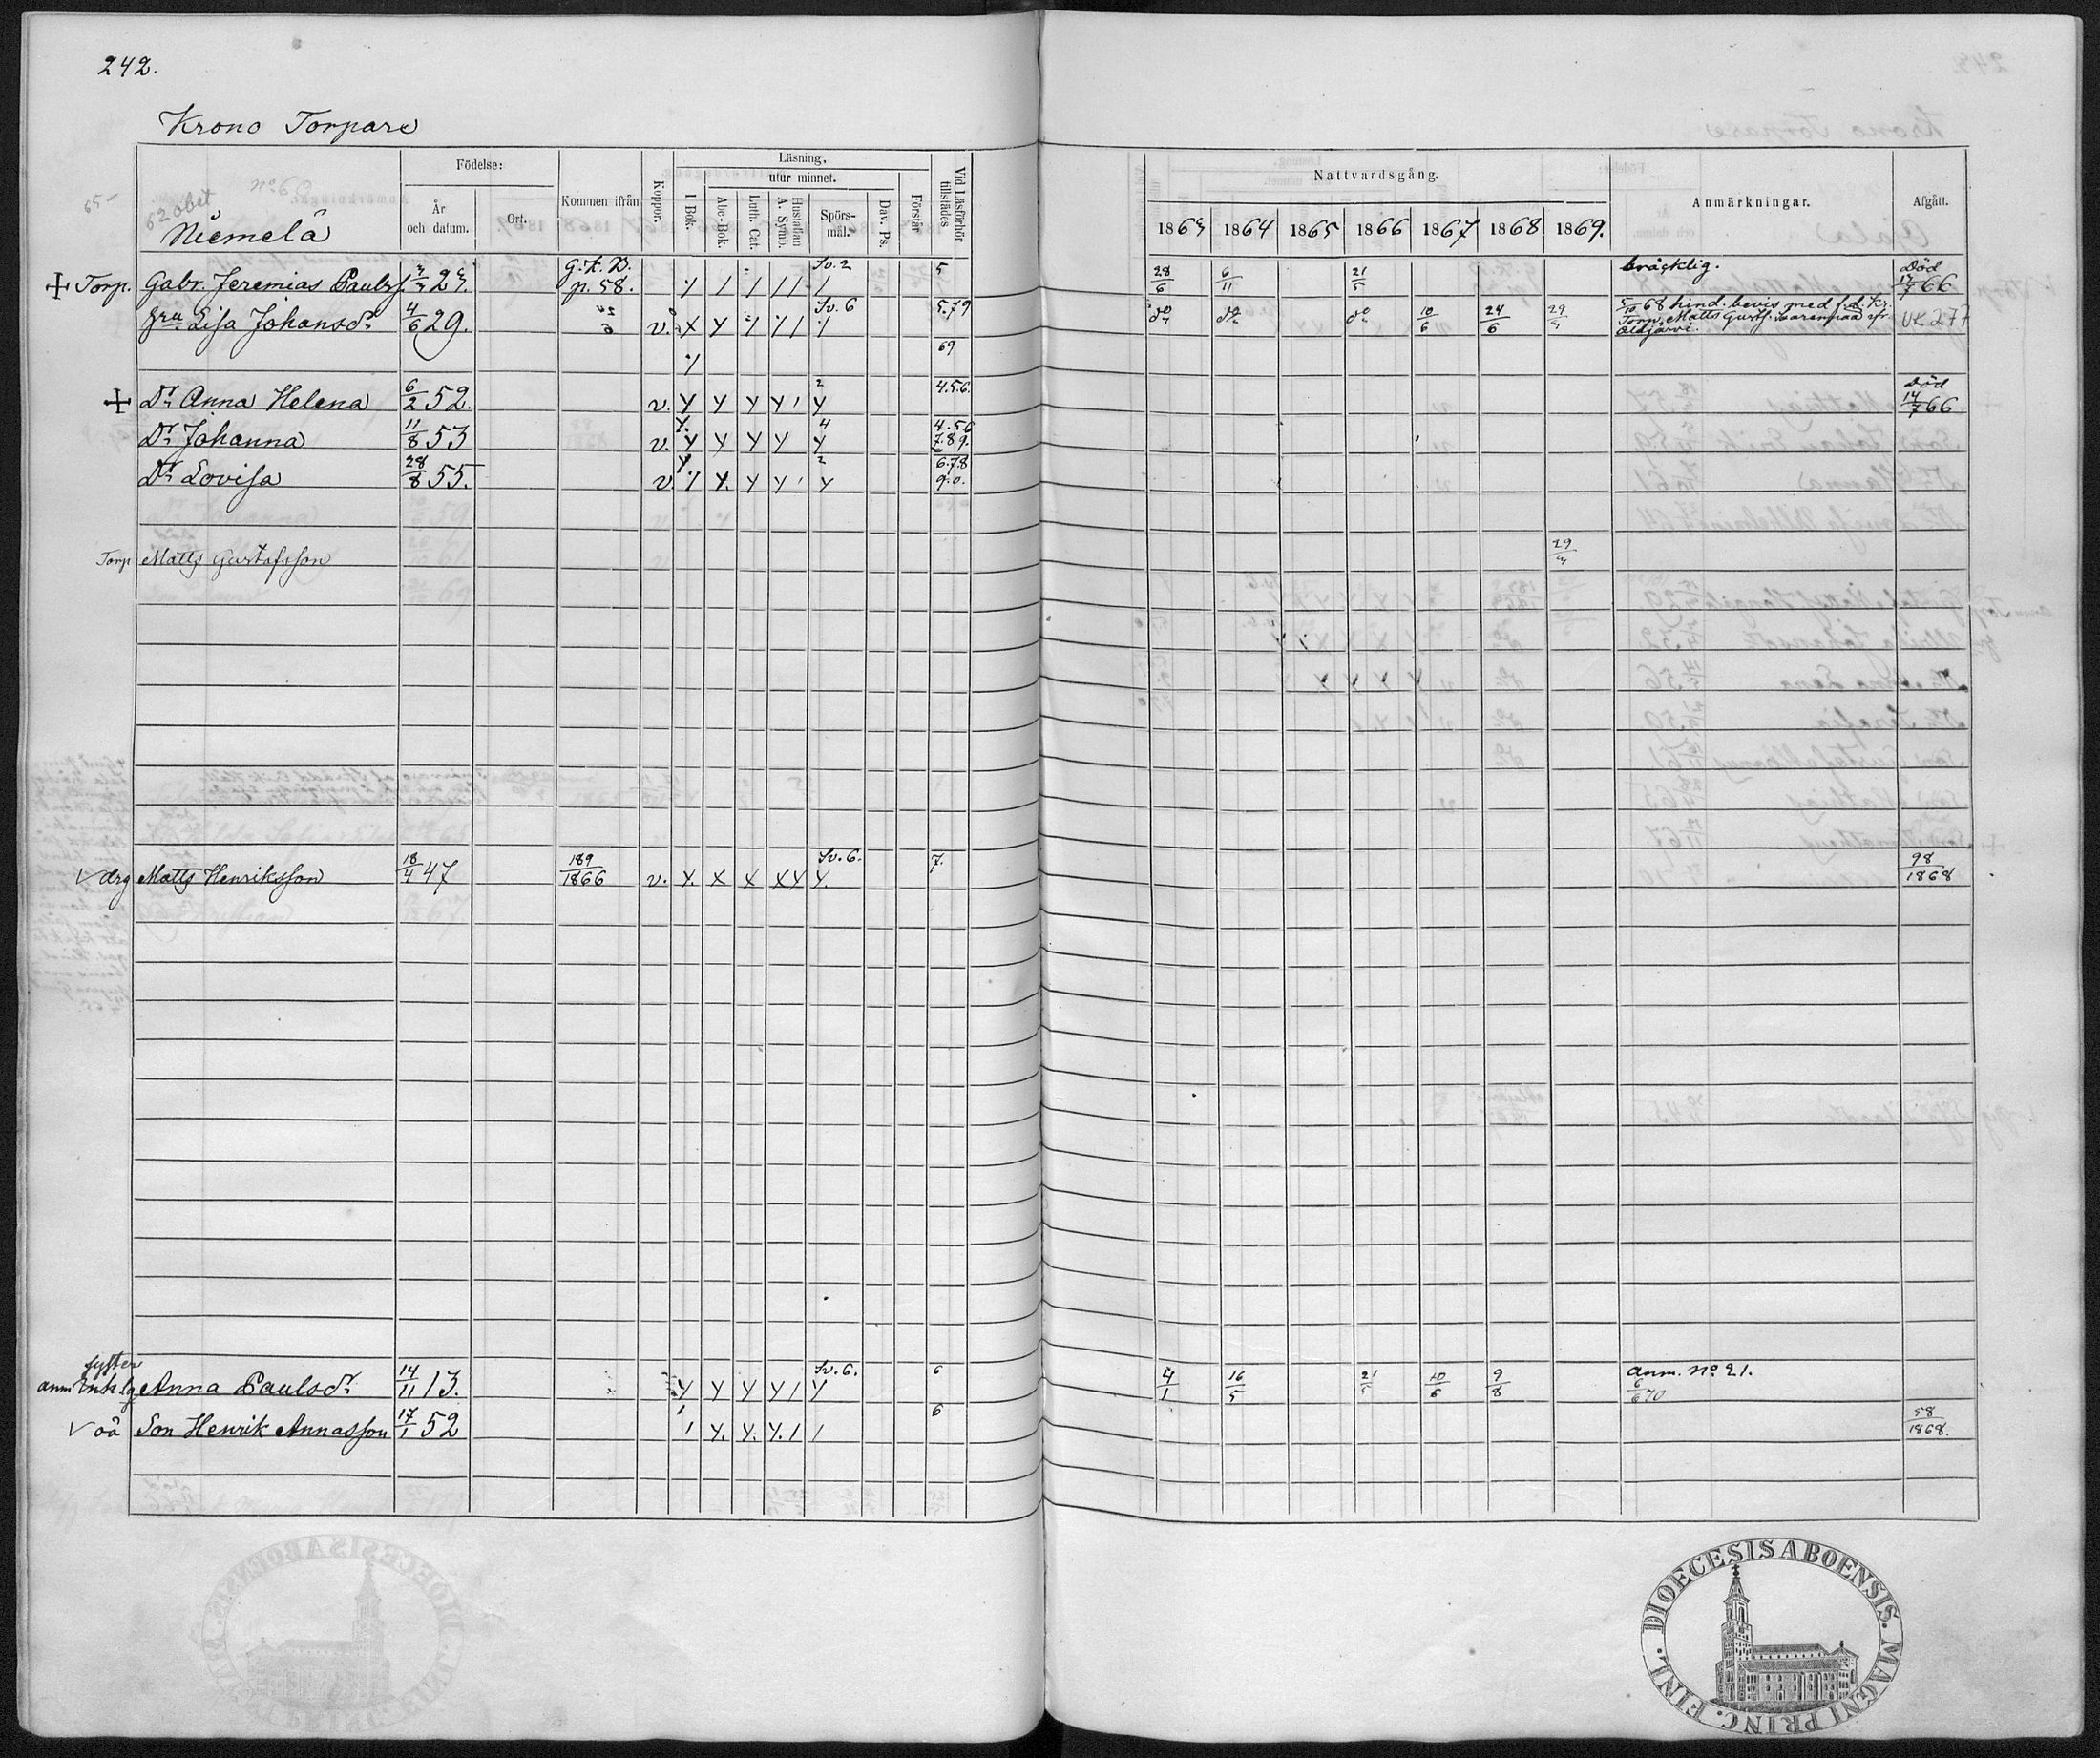 242.
Krono Torpare
Födelse:
Läsning.
utur minnet.
Nattvardsgång.
Anmärkningar.
Afgått.
År och datum.
Ort.
Kommen ifrån
Koppor.
I Bok.
Abc-Bok.
Luth. Cat.
Hustaflan A. Symb.
Spörs-mål.
Dav. Ps.
Förstår
Vid Läsförhör tillstädes
1863 1864 1865 1866 1867 1868 1869.
65
No 6
Niemelä
Torp. Gabr. Jeremias Paulss. 23. G.K.B. p. 58. Sv. 2 5 28/6 6/11 21/5 bräcklig. Död 17/7 66
Hru Lisa Johansdr 4/6 29. v. Sv. 6 5.79 do do do 10/6 24/6 29/ 5/10 68 hind. bevis med f.d. Kr. Torp. Matts Gustfs. UK 277
69
Dr Anna Helena 6/2 52. v. 2 4.5.6. Död 14/7 66
Dr Johanna 11/8 53 v. 4 4.56 7.89.
Dr Lovisa 28/8 55. v 2 6.7.8 9.0.
Torp Matts Gustafsson 29/
drg Matts Henriksson 18/4 47 189/1866 v. Sv. 6. 7. 98/1868
syster
Enk. Anna Paulsdr 14/11 13. Sv. 6. 6 4/1 16/5 21/5 10/6 9/8 anm. No 21. 6/6 70
oä Son Henrik Annasson 17/1 52 6 58/1868.
DIOECESIS ABOENSIS. MAGNI PRINC. FINL.